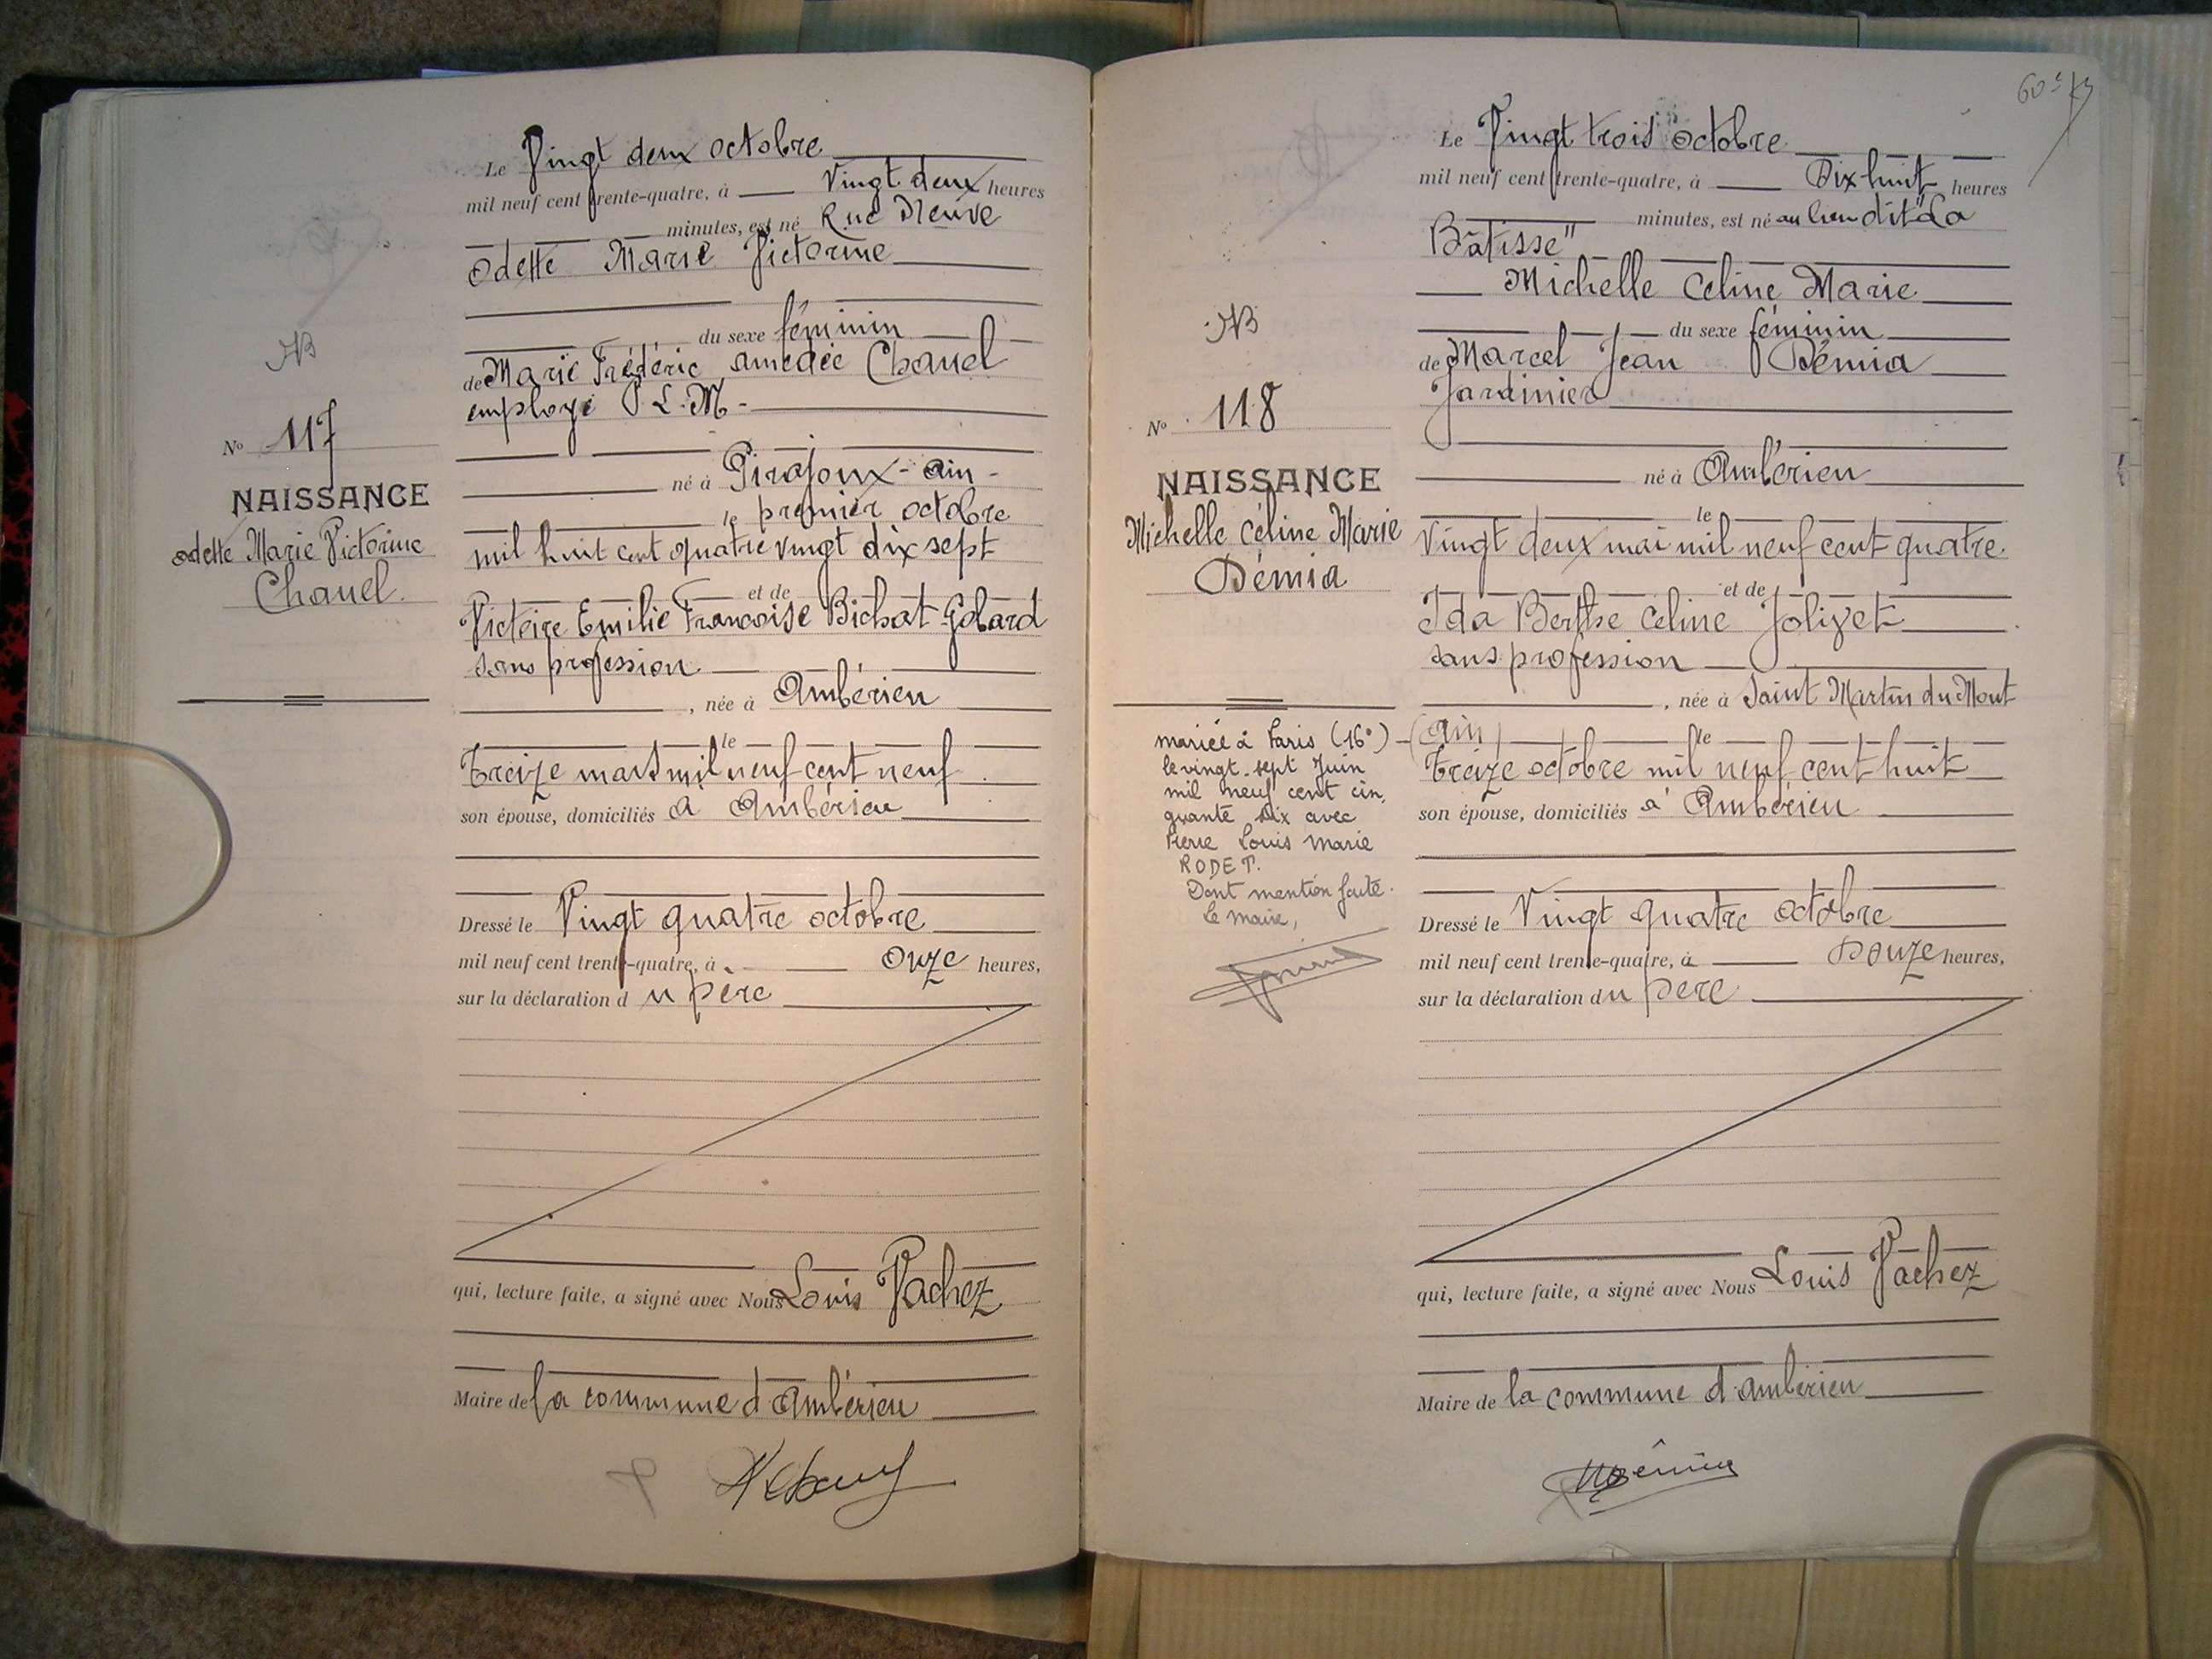 Le Vingt deux octobre
mil neuf cent trente-quatre, à Vingt deux heures
minutes, est né Rue Neuve
Odette Marie Victorine
du sexe féminin
de Marie Frédéric Amédée Chanel
employé P.L.M.
né à Pirajoux - Ain -
le premier octobre
mil huit cent quatre vingt dix sept
et de
Victoire Emilie Françoise Bichat-Gobard
sans profession
, née à Ambérieu
le
treize mars mil neuf cent neuf
son épouse, domiciliés à Ambérieu
Dressé le Vingt quatre octobre
mil neuf cent trente-quatre, à onze heures,
sur la déclaration du père
qui, lecture faite, a signé avec Nous Louis Vachez
Maire de la commune d'Ambérieu
N° 117
NAISSANCE
Odette Marie Victorine
Chanel.
60
Le Vingt trois octobre
mil neuf cent trente-quatre, à Dix huit heures
minutes, est né au lieu dit "La
Bâtisse"
Michelle Céline Marie
du sexe féminin
de Marcel Jean Démia
Jardinier
né à Ambérieu
le
vingt deux mai mil neuf cent quatre
et de
Ida Berthe Céline Jolivet
sans profession
, née à Saint Martin du Mont
(Ain) le
treize octobre mil neuf cent huit
son épouse, domiciliés à Ambérieu
Dressé le Vingt quatre octobre
mil neuf cent trente-quatre, à Douze heures,
sur la déclaration du père
qui, lecture faite, a signé avec Nous Louis Vachez
Maire de la commune d'Ambérieu
N° 118
NAISSANCE
Michelle Céline Marie
Démia
mariée à Paris (16°)
le vingt-sept Juin
mil neuf cent cin
quante six avec
Pierre Louis Marie
RODET.
Dont mention faite.
Le Maire,